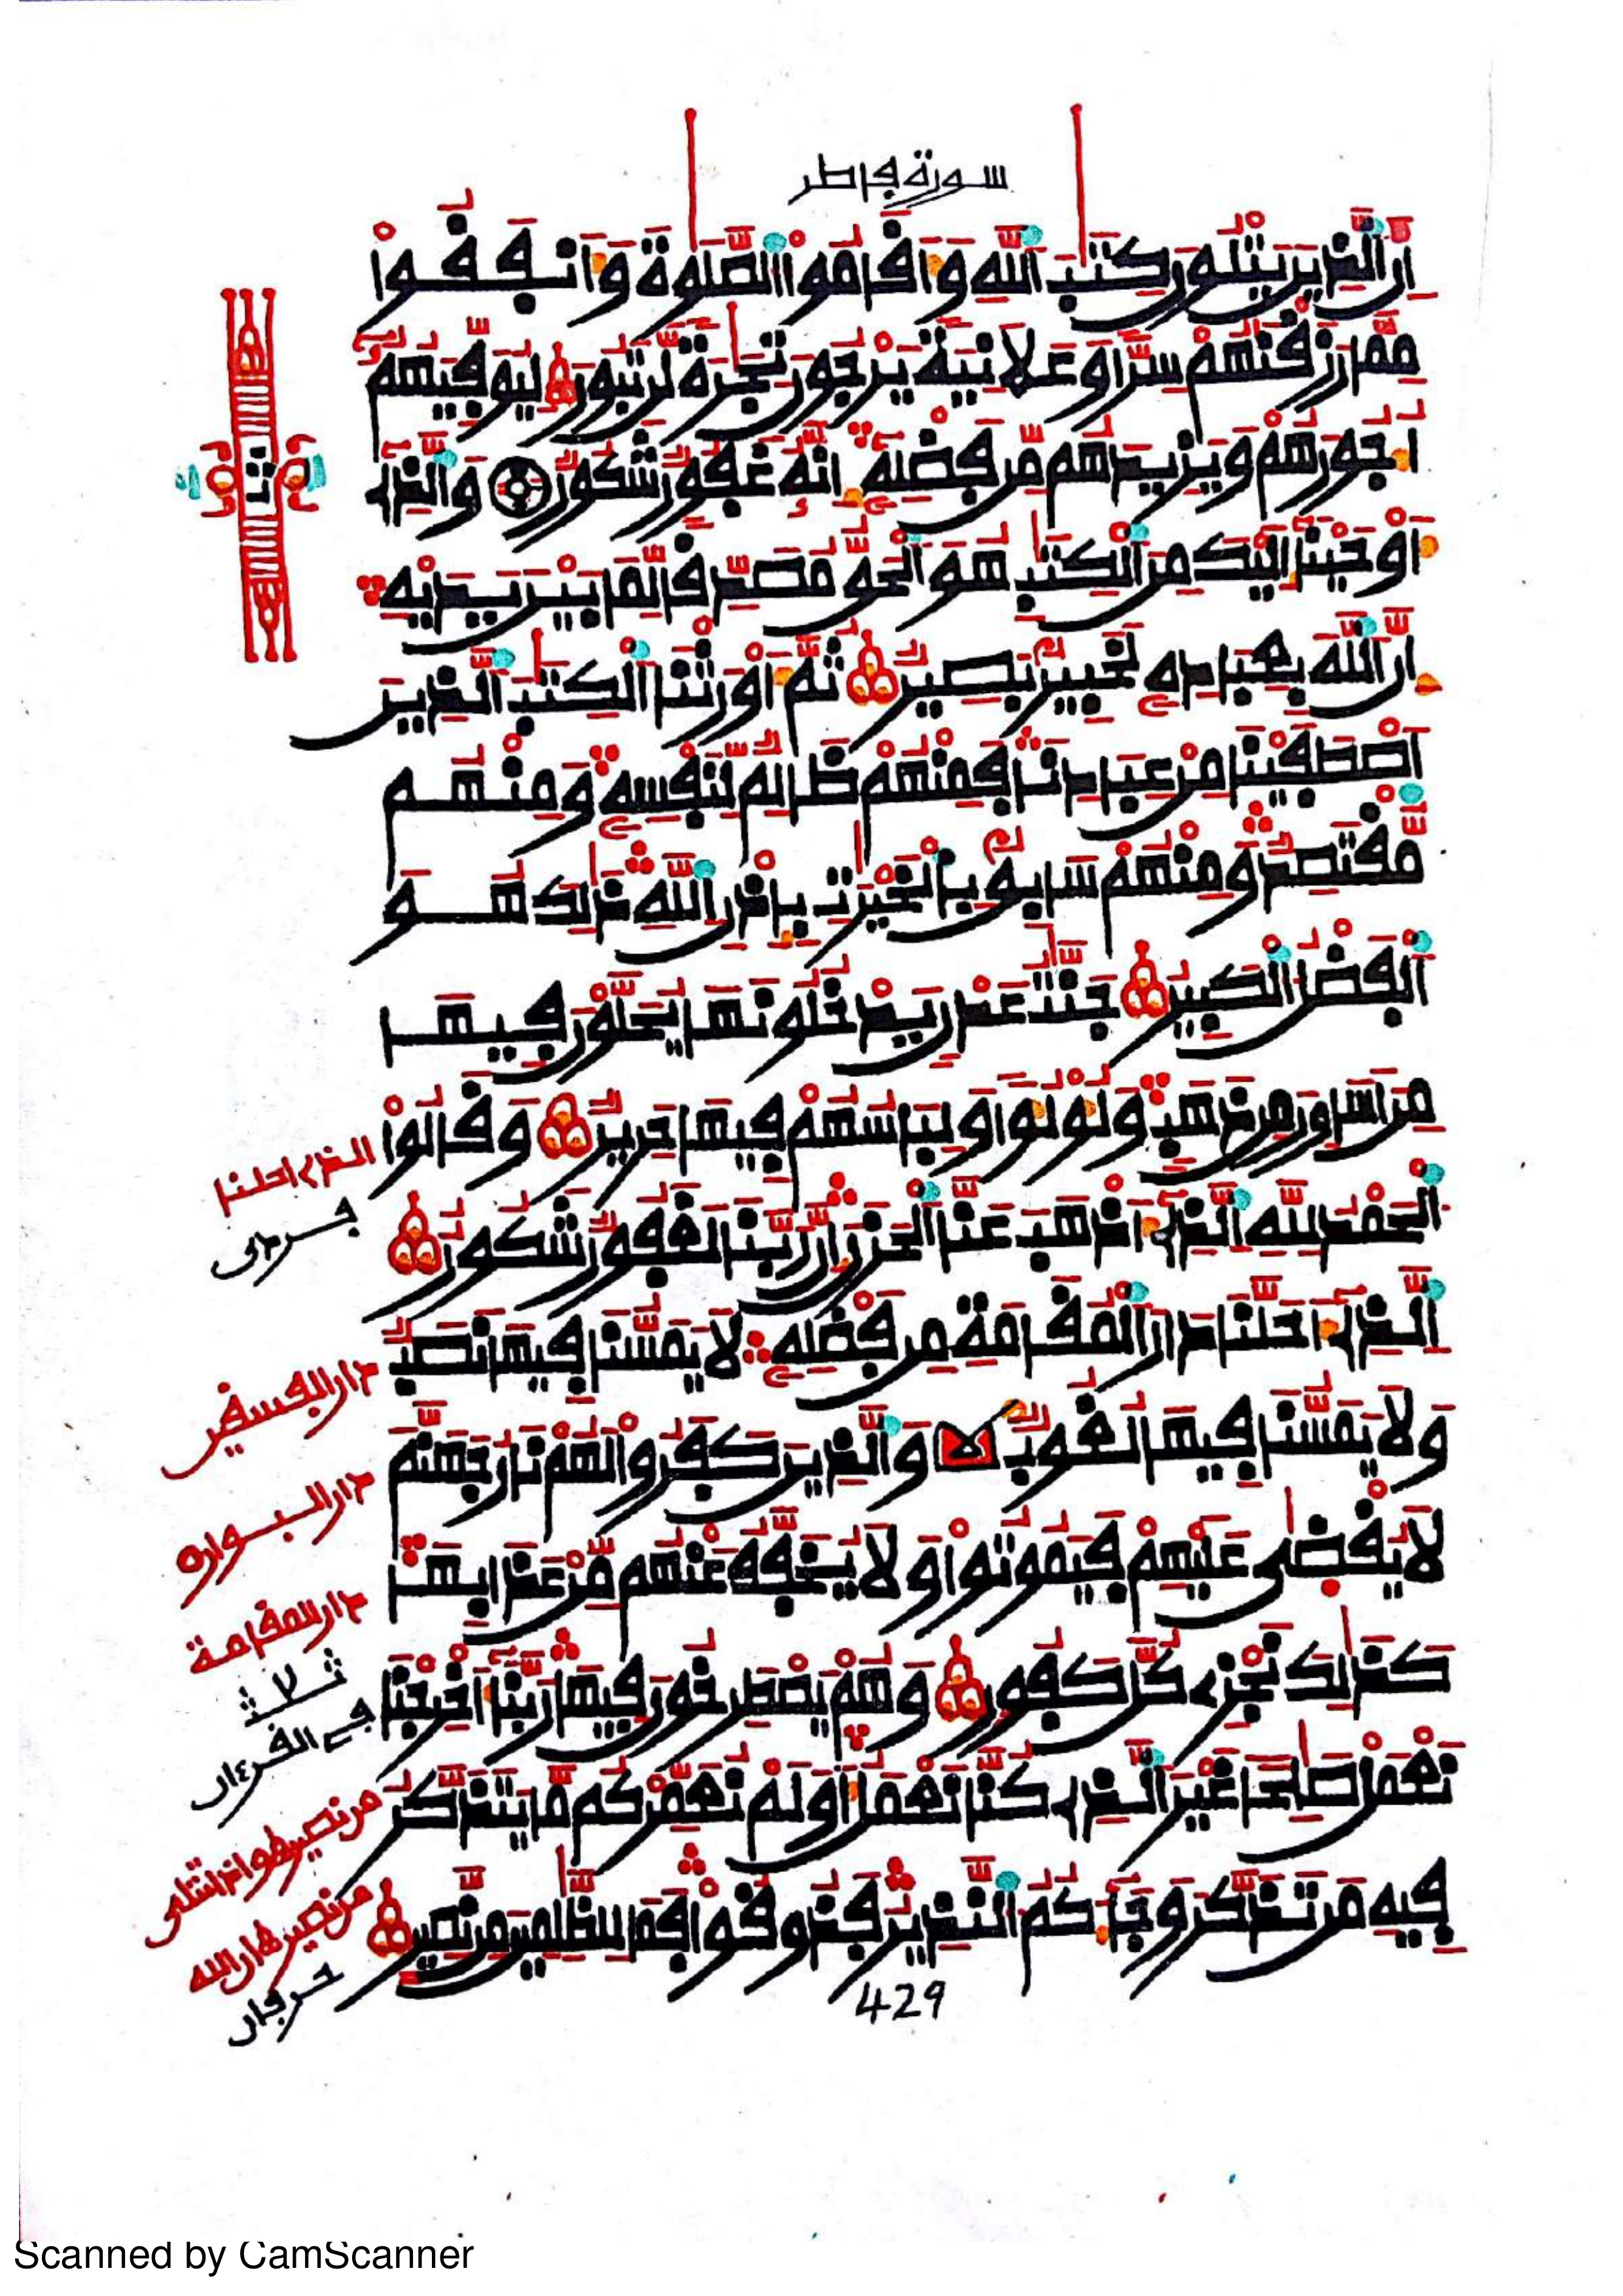 سورة فاطر
اِنَّ الذِينَ يَتْلُونَ كِتَٰبَ اَ۬للَّهِ وَأَقَامُواْ اُ۬لصَّلَوٰةَ وَأَنفَقُواْ
مِمَّا رَزَقْنَٰهُمْ سِرّاٗ وَعَلَانِيَةٗ يَرْجُونَ تِجَٰرَةٗ لَّن تَبُورَ لِيُوَفِّيَهُمُۥٓ
أُجُورَهُمْ وَيَزِيدَهُم مِّن فَضْلِهِۦٓ إِنَّهُۥ غَفُورٞ شَكُورٞ وَالذِےٓ
أَوْحَيْنَآ إِلَيْكَ مِنَ اَ۬لْكِتَٰبِ هُوَ اَ۬لْحَقُّ مُصَدِّقاٗ لِّمَا بَيْنَ يَدَيْهِ
إِنَّ اَ۬للَّهَ بِعِبَادِهِۦ لَخَبِيرُۢ بَصِيرٞ ثُمَّ أَوْرَثْنَا اَ۬لْكِتَٰبَ اَ۬لذِينَ
اَ۪صْطَفَيْنَا مِنْ عِبَادِنَا فَمِنْهُمْ ظَالِمٞ لِّنَفْسِهِۦ وَمِنْهُم
مُّقْتَصِدٞ وَمِنْهُمْ سَابِقُۢ بِالْخَيْرَٰتِ بِإِذْنِ اِ۬للَّهِ ذَٰلِكَ هُوَ
اَ۬لْفَضْلُ اُ۬لْكَبِيرُ جَنَّٰتُ عَدْنٖ يَدْخُلُونَهَا يُحَلَّوْنَ فِيهَا
مِنَ اَسَاوِرَ مِن ذَهَبٖ وَلُؤْلُؤاٗ وَلِبَاسُهُمْ فِيهَا حَرِيرٞ وَقَالُواْ
اُ۬لْحَمْدُ لِلهِ اِ۬لذِےٓ أَذْهَبَ عَنَّا اَ۬لْحَزَنَ إِنَّ رَبَّنَا لَغَفُورٞ شَكُورٌ
اِ۬لذِےٓ أَحَلَّنَا دَارَ اَ۬لْمُقَامَةِ مِن فَضْلِهِۦ لَا يَمَسُّنَا فِيهَا نَصَبٞ
وَلَا يَمَسُّنَا فِيهَا لُغُوبٞ وَالذِينَ كَفَرُواْ لَهُمْ نَارُ جَهَنَّمَ
لَا يُقْضَىٰ عَلَيْهِمْ فَيَمُوتُواْ وَلَا يُخَفَّفُ عَنْهُم مِّنْ عَذَابِهَا
كَذَٰلِكَ نَجْزِے كُلَّ كَفُورٖ وَهُمْ يَصْطَرِخُونَ فِيهَا رَبَّنَآ أَخْرِجْنَا
نَعْمَلْ صَٰلِحاً غَيْرَ اَ۬لذِے كُنَّا نَعْمَلُ أَوَلَمْ نُعَمِّرْكُم مَّا يَتَذَكَّرُ
فِيهِ مَن تَذَكَّرَ وَجَآءَكُمُ اُ۬لنَّذِيرُ فَذُوقُواْ فَمَا لِلظَّٰلِمِينَ مِن نَّصِيرٍ
الذے احلنا
دار البوار
دار المقامة
من نصير ان الله
429
Scanned by CamScanner